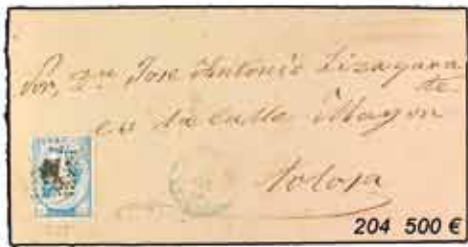 Sor. Dn. Jose Antonio Lizagarra
de
en la calle Mayor
Tolosa
204 500 €